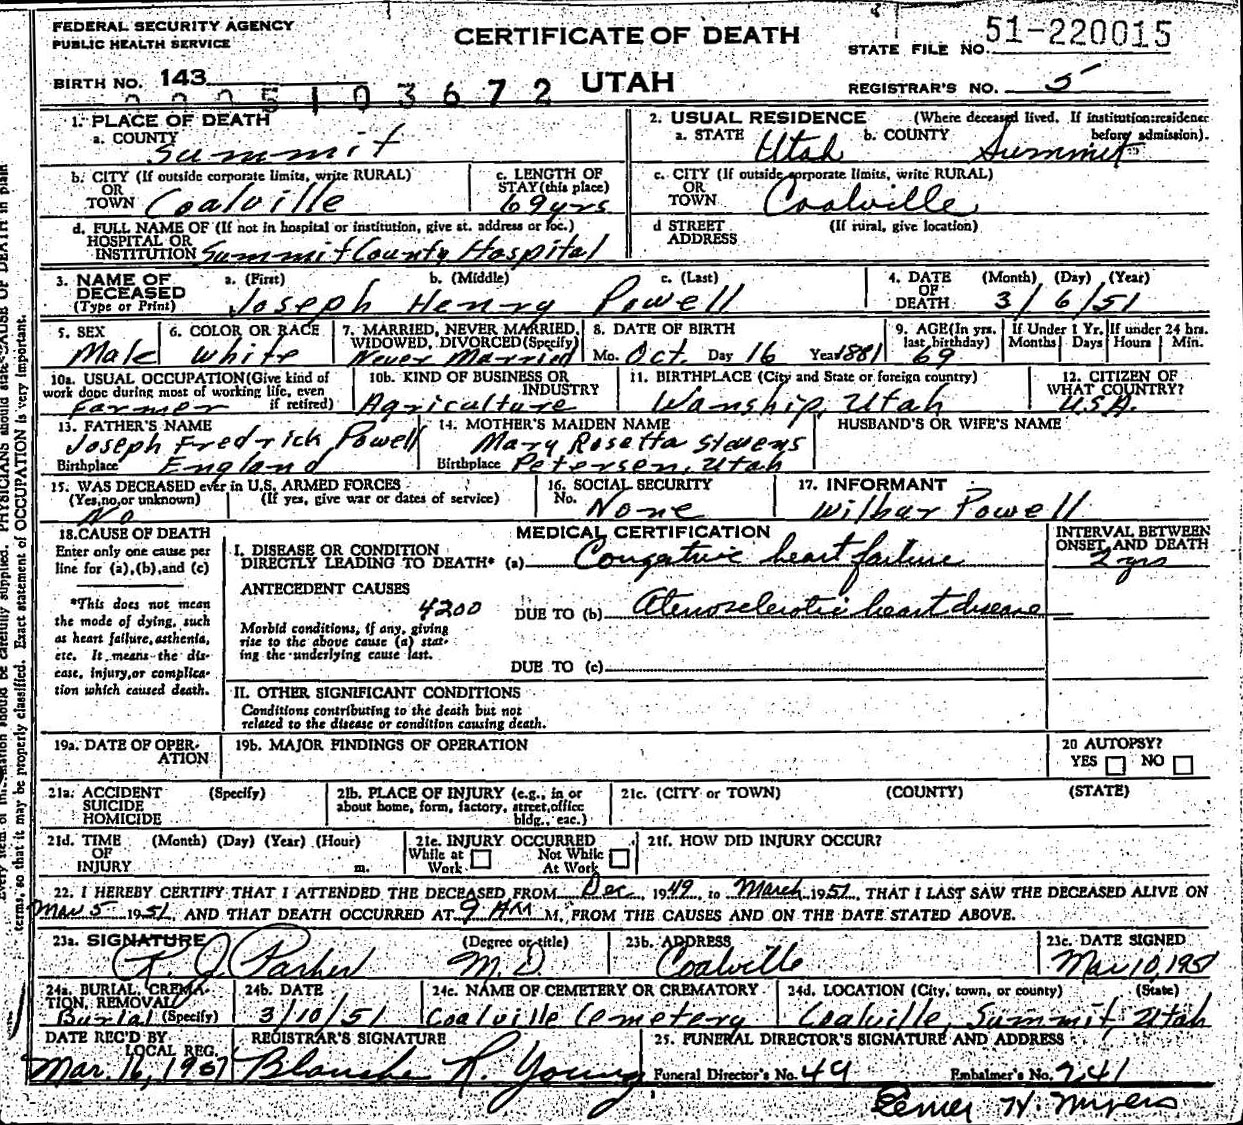 FEDERAL SECURITY AGENCY
PUBLIC HEALTH SERVICE
CERTIFICATE OF DEATH
STATE FILE NO. 51-220015
BIRTH NO. 143
UTAH
REGISTRAR'S NO. 5
103672
1. PLACE OF DEATH
a. COUNTY
Summit
2. USUAL RESIDENCE (Where deceased lived. If institution:residence before admission).
a. STATE Utah b. COUNTY Summit
b. CITY (If outside corporate limits, write RURAL)
OR
TOWN Coalville
c. LENGTH OF
STAY (this place)
69yrs
c. CITY (If outside corporate limits, write RURAL)
OR
TOWN Coalville
d. FULL NAME OF (If not in hospital or institution, give st. address or loc.)
HOSPITAL OR
INSTITUTION Summit County Hospital
d STREET (If rural, give location)
ADDRESS
3. NAME OF DECEASED (Type or Print)
a. (First) b. (Middle) c. (Last)
Joseph Henry Powell
4. DATE OF DEATH (Month) (Day) (Year)
3/6/51
5. SEX
Male
6. COLOR OR RACE
White
7. MARRIED, NEVER MARRIED,
WIDOWED, DIVORCED (Specify)
Never Married
8. DATE OF BIRTH
Mo. Oct. Day 16 Year 1881
9. AGE (In yrs. last birthday)
69
If Under 1 Yr. Months Days
If under 24 hrs. Hours Min.
10a. USUAL OCCUPATION (Give kind of
work done during most of working life, even
if retired)
Farmer
10b. KIND OF BUSINESS OR
INDUSTRY
Agriculture
11. BIRTHPLACE (City and State or foreign country)
Wanship, Utah
12. CITIZEN OF
WHAT COUNTRY?
U.S.A.
13. FATHER'S NAME
Joseph Fredrick Powell
Birthplace England
14. MOTHER'S MAIDEN NAME
Mary Rosetta Stevens
Birthplace Petersen, Utah
HUSBAND'S OR WIFE'S NAME
15. WAS DECEASED ever in U.S. ARMED FORCES
(Yes, no, or unknown) (If yes, give war or dates of service)
No
16. SOCIAL SECURITY
No. None
17. INFORMANT
Wilbur Powell
18. CAUSE OF DEATH
Enter only one cause per
line for (a), (b), and (c)
*This does not mean
the mode of dying, such
as heart failure, asthenia,
etc. It means the dis-
ease, injury, or complica-
tion which caused death.
MEDICAL CERTIFICATION
I. DISEASE OR CONDITION
DIRECTLY LEADING TO DEATH* (a) Congative heart failure
INTERVAL BETWEEN
ONSET AND DEATH
2 yrs
ANTECEDENT CAUSES
4200
DUE TO (b) Aterosclerotic heart disease
Morbid conditions, if any, giving
rise to the above cause (a) stat-
ing the underlying cause last.
DUE TO (c)
II. OTHER SIGNIFICANT CONDITIONS
Conditions contributing to the death but not
related to the disease or condition causing death.
19a. DATE OF OPER-
ATION
19b. MAJOR FINDINGS OF OPERATION
20 AUTOPSY?
YES NO
21a. ACCIDENT (Specify)
SUICIDE
HOMICIDE
21b. PLACE OF INJURY (e.g., in or
about home, form, factory, street, office
bldg., eac.)
21c. (CITY or TOWN) (COUNTY) (STATE)
21d. TIME (Month) (Day) (Year) (Hour)
OF
INJURY m.
21e. INJURY OCCURRED
While at Work
Not While At Work
21f. HOW DID INJURY OCCUR?
22. I HEREBY CERTIFY THAT I ATTENDED THE DECEASED FROM Dec 1949 to March 1951 THAT I LAST SAW THE DECEASED ALIVE ON
Mar 5 1951, AND THAT DEATH OCCURRED AT 9 AM M, FROM THE CAUSES AND ON THE DATE STATED ABOVE.
23a. SIGNATURE (Degree or title)
R. J. Parker M.D.
23b. ADDRESS
Coalville
23c. DATE SIGNED
Mar 10, 1951
24a. BURIAL, CREMA-
TION, REMOVAL
Burial (Specify)
24b. DATE
3/10/51
24c. NAME OF CEMETERY OR CREMATORY
Coalville Cemetery
24d. LOCATION (City, town, or county) (State)
Coalville, Summit, Utah
DATE REC'D BY
LOCAL REG.
Mar. 16, 1951
REGISTRAR'S SIGNATURE
Blanche R. Young
25. FUNERAL DIRECTOR'S SIGNATURE AND ADDRESS
Funeral Director's No. 49 Embalmer's No. 241
N. Myers
terms, so that it may be properly classified. Exact statement of OCCUPATION is very important.
should be carefully supplied. PHYSICIANS should state CAUSE OF DEATH in plain